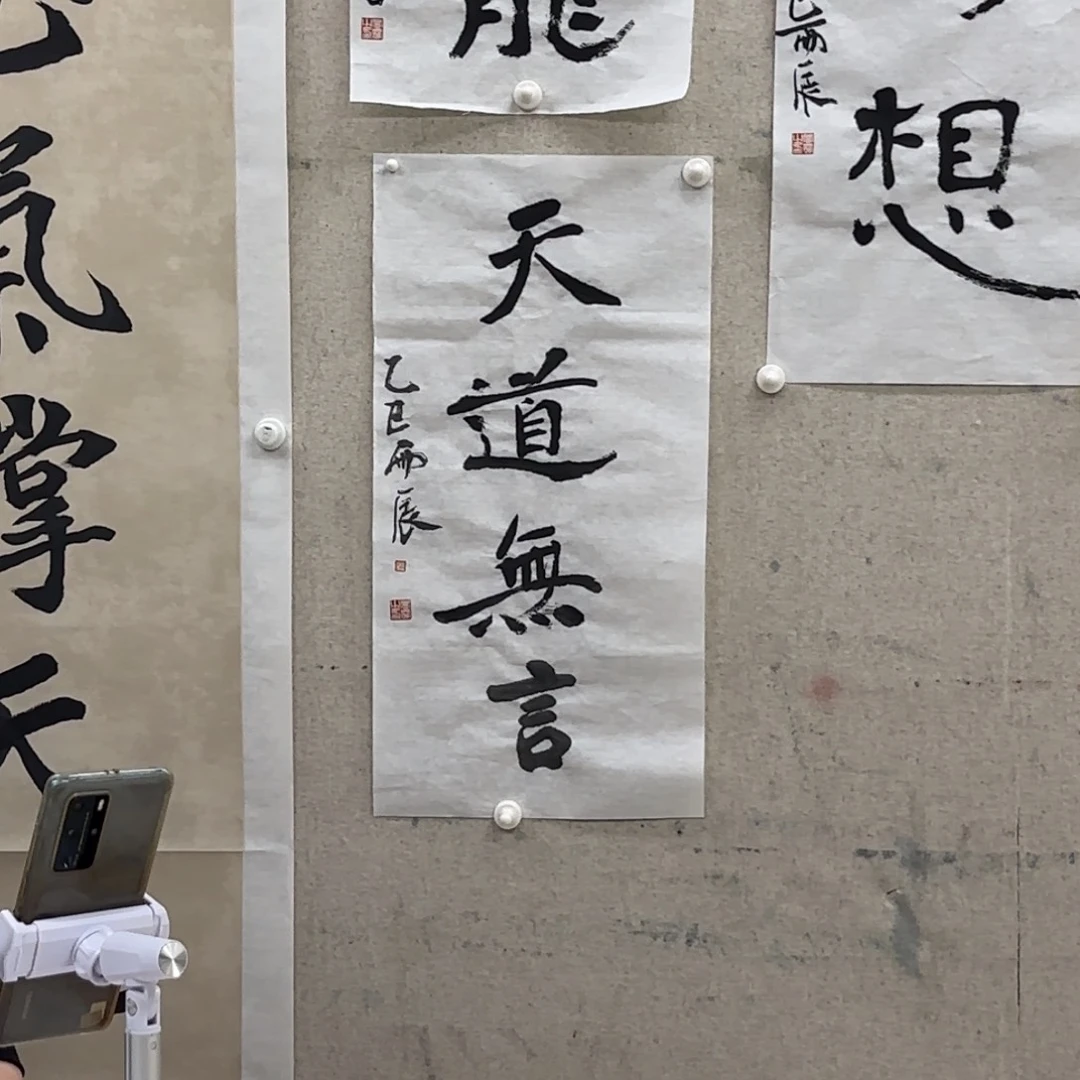 天道無言
乙巳雨辰
想
雨辰
氣掌天